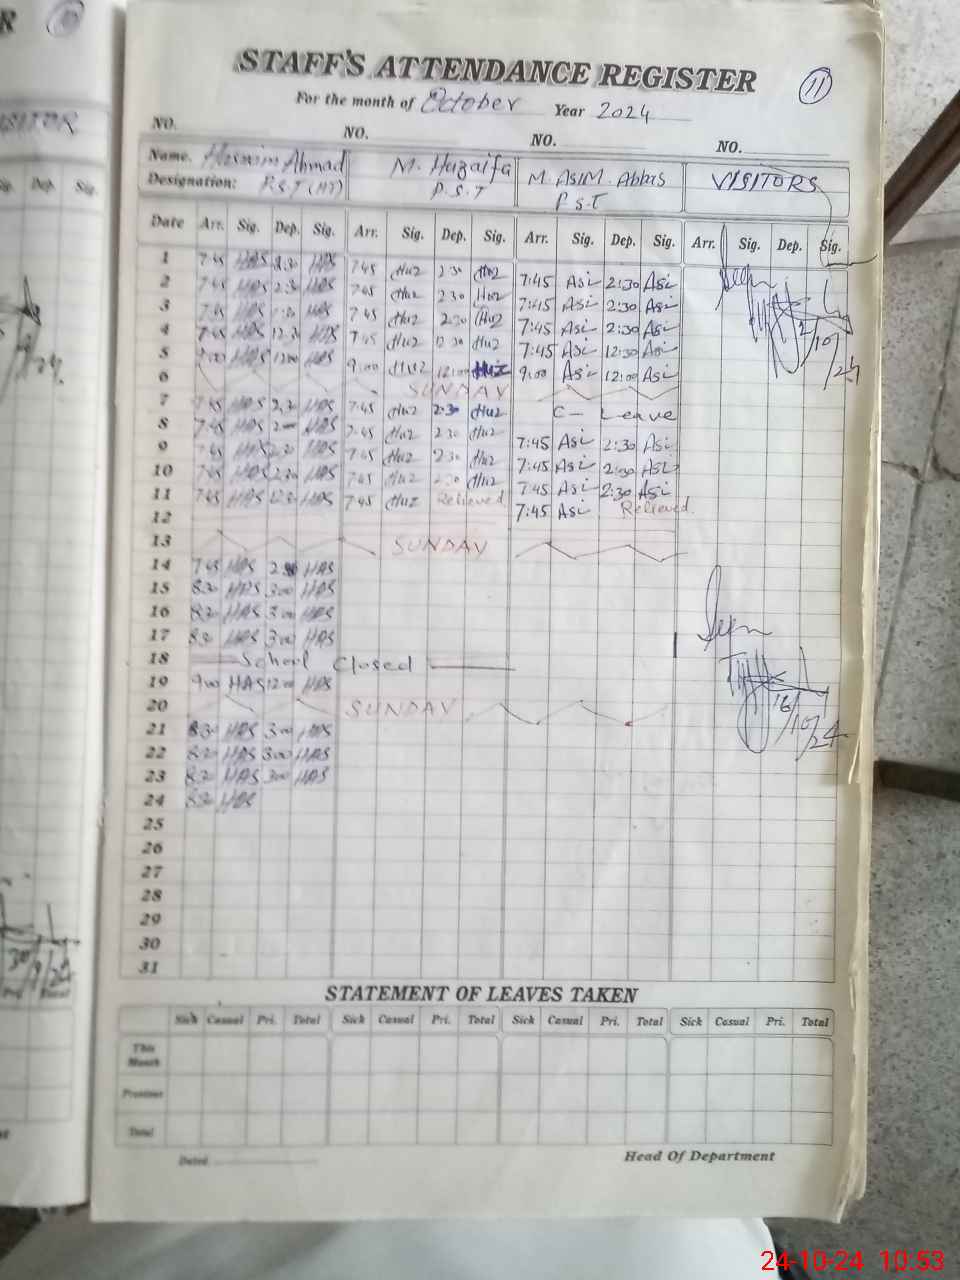 STAFF'S ATTENDANCE REGISTER
11
For the month of October Year 2024
NO. NO. NO. NO.
Name. Hasnain Ahmad M. Huzaifa M. ASIM. Abbas VISITORS
Designation: P.S.T (HT) P.S.T P.S.T
Date Arr. Sig. Dep. Sig. Arr. Sig. Dep. Sig. Arr. Sig. Dep. Sig. Arr. Sig. Dep. Sig.
1 7:45 HAS 2:30 HAS 7:45 Huz 2:30 Huz 7:45 Asi 2:30 Asi
2 7:45 HAS 2:30 HAS 7:45 Huz 2:30 Huz 7:45 Asi 2:30 Asi
3 7:45 HAS 2:30 HAS 7:45 Huz 2:30 Huz 7:45 Asi 2:30 Asi
4 7:45 HAS 12:30 HAS 7:45 Huz 12:30 Huz 7:45 Asi 12:30 Asi
5 9:00 HAS 12:00 HAS 9:00 Huz 12:00 Huz 9:00 Asi 12:00 Asi
6 SUNDAY
7 7:45 HAS 2:30 HAS 7:45 Huz 2:30 Huz C- Leave
8 7:45 HAS HAS 7:45 Huz 2:30 Huz 7:45 Asi 2:30 Asi
9 7:45 HAS 2:30 HAS 7:45 Huz 2:30 Huz 7:45 Asi 2:30 Asi
10 7:45 HAS 2:30 HAS 7:45 Huz 2:30 Huz 7:45 Asi 2:30 Asi
11 7:45 HAS 12:30 HAS 7:45 Huz Relieved 7:45 Asi Relieved
12
13 SUNDAY
14 7:45 HAS HAS
15 8:30 HAS 3:00 HAS
16 8:30 HAS 3:00 HAS
17 8:30 HAS 3:00 HAS
18 School Closed
19 9:00 HAS 12:00 HAS
20 SUNDAY
21 8:30 HAS 3:00 HAS
22 8:30 HAS 3:00 HAS
23 8:30 HAS 3:00 HAS
24 8:30 HAS
25
26
27
28
29
30
31
Seen
2/10/24
Seen
16/10/24
STATEMENT OF LEAVES TAKEN
Sick Casual Pri. Total Sick Casual Pri. Total Sick Casual Pri. Total Sick Casual Pri. Total
This Month
Previous
Total
Dated
Head Of Department
R
VISITOR
Sig. Dep. Sig.
30/9/24
Pri Total
24-10-24 10:53